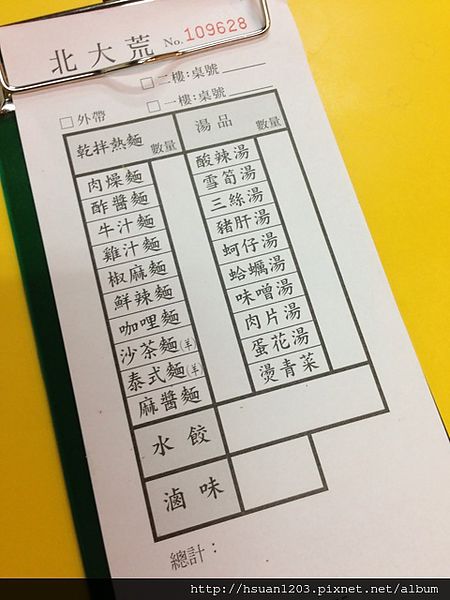 北大荒 No. 109628
□二樓:桌號
□外帶 □一樓:桌號
乾拌熱麵 數量 湯品 數量
肉燥麵 酸辣湯
酢醬麵 雪筍湯
牛汁麵 三絲湯
雞汁麵 豬肝湯
椒麻麵 蚵仔湯
鮮辣麵 蛤蠣湯
咖哩麵 味噌湯
沙茶麵(羊) 肉片湯
泰式麵(羊) 蛋花湯
麻醬麵 燙青菜
水餃
滷味
總計:
http://hsuan1203.pixnet.net/album